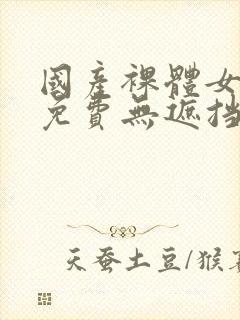 國產裸體女
免費無遮挡
天蚕土豆/猴